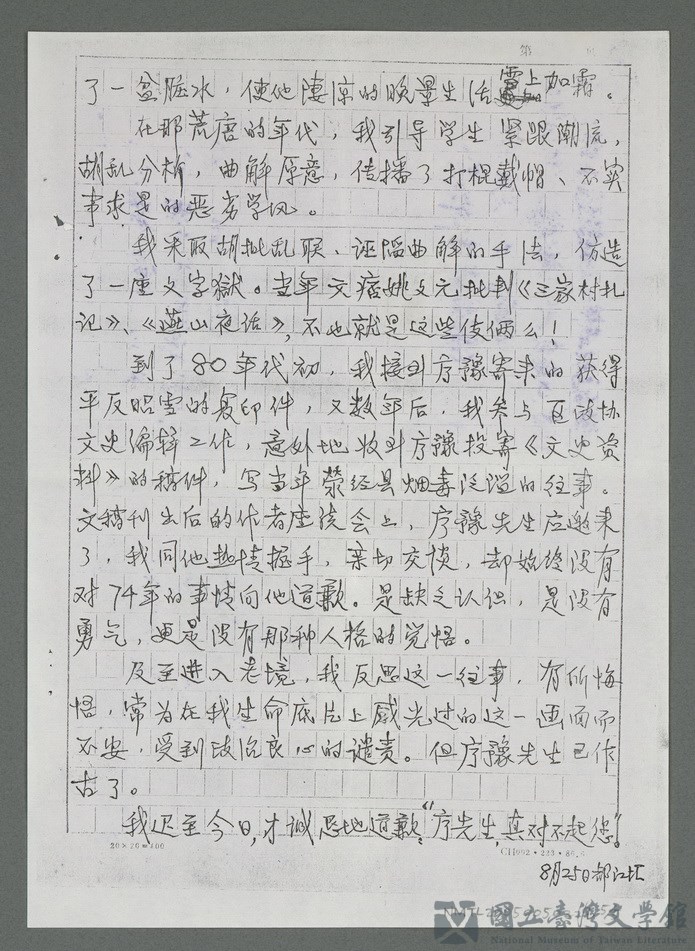 了一盆脏水，使他凄凉的晚景生活雪上加霜。
在那荒唐的年代，我引导学生紧跟潮流，
胡乱分析，曲解原意，传播了打棍戴帽、不实
事求是的恶劣学风。
我采取胡批乱联、诬蹈曲解的手法，仿造
了一座文字獄。当年文痞姚文元批判《三家村札
记》、《燕山夜话》，不也就是这些伎俩么！
到了80年代初，我接到序豫寄来的获得
平反昭雪的复印件，又数年后，我参与区政协
文史编辑工作，意外地收到序豫投寄《文史资
料》的稿件，写当年荥经县烟毒泛滥的往事。
文稿刊出后的作者座谈会上，序豫先生应邀来
了，我同他热情握手，亲切交谈，却始终没有
对74年的事情向他道歉。是缺乏认识，是没有
勇气，更是没有那种人格的觉悟。
及至进入老境，我反思这一往事，有所悔
悟，常为在我生命底片上感光过的这一画面而
不安，受到政治良心的谴责。但序豫先生已作
古了。
我迟至今日，才诚恳地道歉：“序先生，真对不起您”。
20×20=400
8月25日都江堰
國立臺灣文學館
National Museum of Taiwan Literature